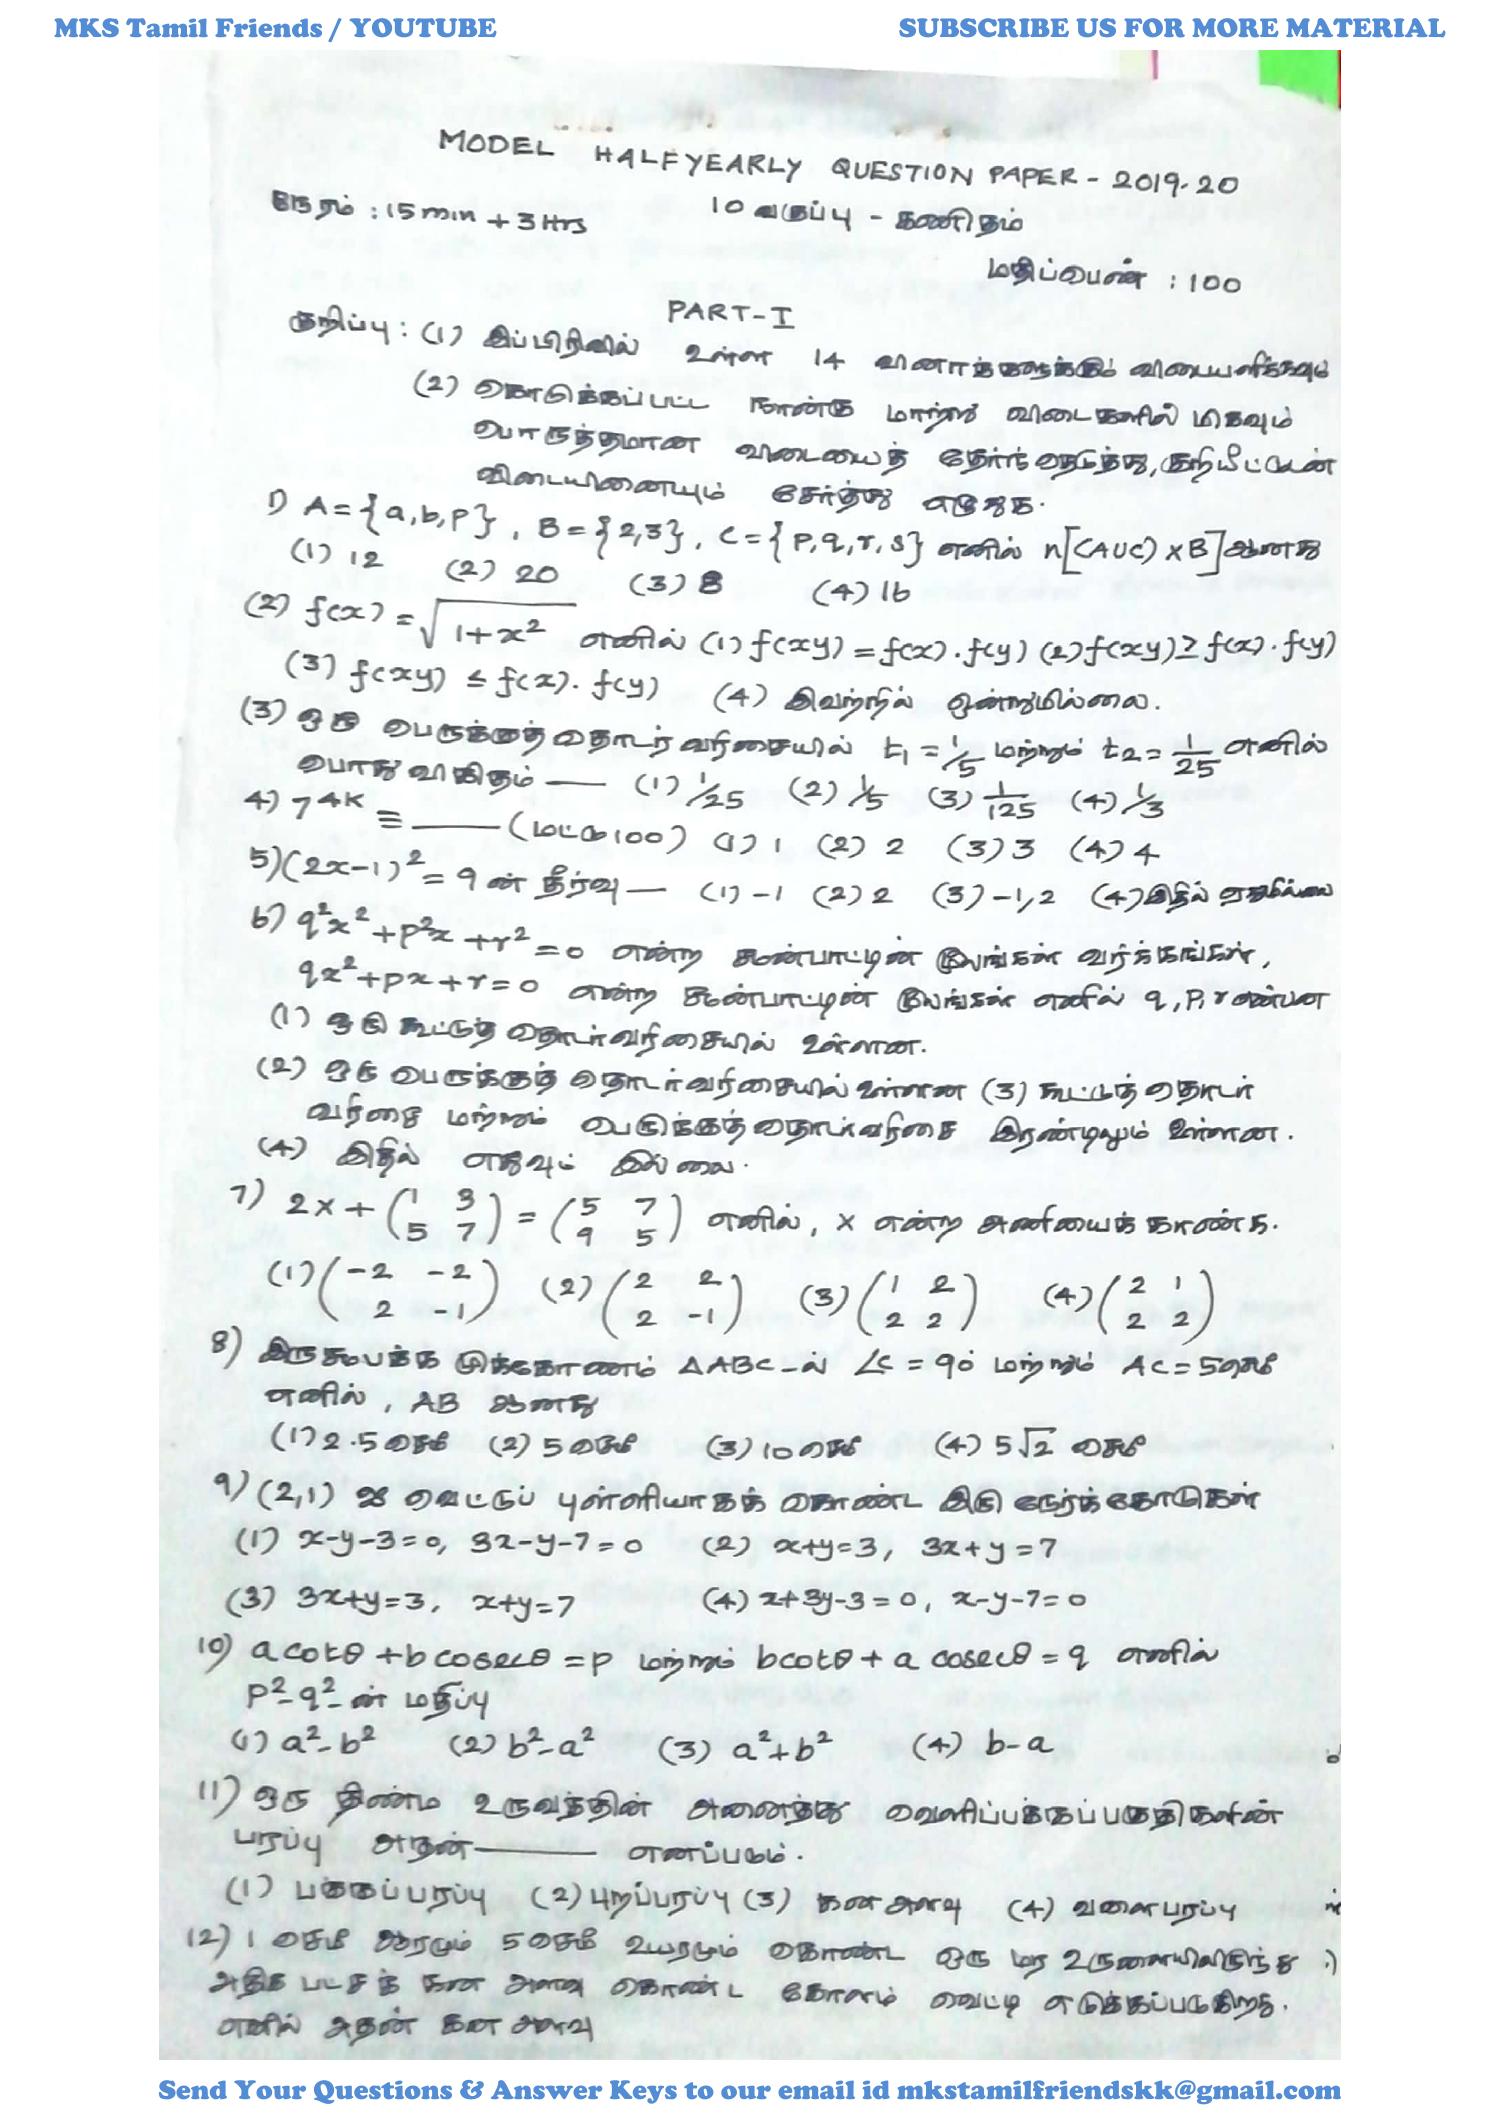 MKS Tamil Friends / YOUTUBE SUBSCRIBE US FOR MORE MATERIAL
MODEL HALFYEARLY QUESTION PAPER - 2019-20
நேரம் : 15 min + 3 Hrs 10 வகுப்பு - கணிதம்
மதிப்பெண் : 100
PART-I
குறிப்பு : (1) இப்பிரிவில் உள்ள 14 வினாக்களுக்கும் விடையளிக்கவும்
(2) கொடுக்கப்பட்ட நான்கு மாற்று விடைகளில் மிகவும்
பொருத்தமான விடையைத் தேர்ந்தெடுத்து, குறியீட்டுடன்
விடையினையும் சேர்த்து எழுதுக.
1) A = {a, b, p}, B = {2,3}, C = {p, q, r, s} எனில் n[(AUC) × B] ஆனது
(1) 12 (2) 20 (3) 8 (4) 16
(2) f(x) = √1+x² எனில் (1) f(xy) = f(x).f(y) (2) f(xy) ≥ f(x).f(y)
(3) f(xy) ≤ f(x).f(y) (4) இவற்றில் ஒன்றுமில்லை.
(3) ஒரு பெருக்குத்தொடர் வரிசையில் t₁ = 1/5 மற்றும் t₂ = 1/25 எனில்
பொது விகிதம் —— (1) 1/25 (2) 1/5 (3) 1/125 (4) 1/3
4) 7^4K ≡ —— (மட்டு 100) (1) 1 (2) 2 (3) 3 (4) 4
5) (2x-1)² = 9 ன் தீர்வு — (1) -1 (2) 2 (3) -1, 2 (4) இதில் ஏதுமில்லை
6) q²x² + p²x + r² = 0 என்ற சமன்பாட்டின் மூலங்கள் வர்க்கங்கள்,
qx² + px + r = 0 என்ற சமன்பாட்டின் மூலங்கள் எனில் q, p, r என்பன
(1) ஒரு கூட்டுத் தொடர்வரிசையில் உள்ளன.
(2) ஒரு பெருக்குத் தொடர்வரிசையில் உள்ளன (3) கூட்டுத் தொடர்
வரிசை மற்றும் பெருக்குத் தொடர்வரிசை இரண்டிலும் உள்ளன.
(4) இதில் எதுவும் இல்லை.
7) 2x + (1 3 = (5 7 எனில், x என்ற அணியைக் காண்க.
5 7) 9 5)
(1) (-2 -2 (2) (2 2 (3) (1 2 (4) (2 1
2 -1) 2 -1) 2 2) 2 2)
8) இருசமபக்க முக்கோணம் ΔABC-ல் ∠C = 90° மற்றும் AC = 5 செமீ
எனில், AB ஆனது
(1) 2.5 செமீ (2) 5 செமீ (3) 10 செமீ (4) 5√2 செமீ
9) (2,1) ஐ வெட்டுப் புள்ளியாகக் கொண்ட இரு நேர்க்கோடுகள்
(1) x-y-3=0, 3x-y-7=0 (2) x+y=3, 3x+y=7
(3) 3x+y=3, x+y=7 (4) x+3y-3=0, x-y-7=0
10) a cotθ + b cosecθ = p மற்றும் b cotθ + a cosecθ = q எனில்
p²-q²-ன் மதிப்பு
(1) a²-b² (2) b²-a² (3) a²+b² (4) b-a
11) ஒரு திண்ம உருவத்தின் அனைத்து வெளிப்பக்கப்பகுதிகளின்
பரப்பு அதன் —— எனப்படும்.
(1) பக்கப்பரப்பு (2) புறப்பரப்பு (3) கன அளவு (4) வளைபரப்பு
12) 1 செமீ ஆரமும் 5 செமீ உயரமும் கொண்ட ஒரு மர உருளையிலிருந்து
அதிக பட்சக் கன அளவு கொண்ட கோளம் வெட்டி எடுக்கப்படுகிறது.
எனில் அதன் கன அளவு
Send Your Questions & Answer Keys to our email id mkstamilfriendskk@gmail.com